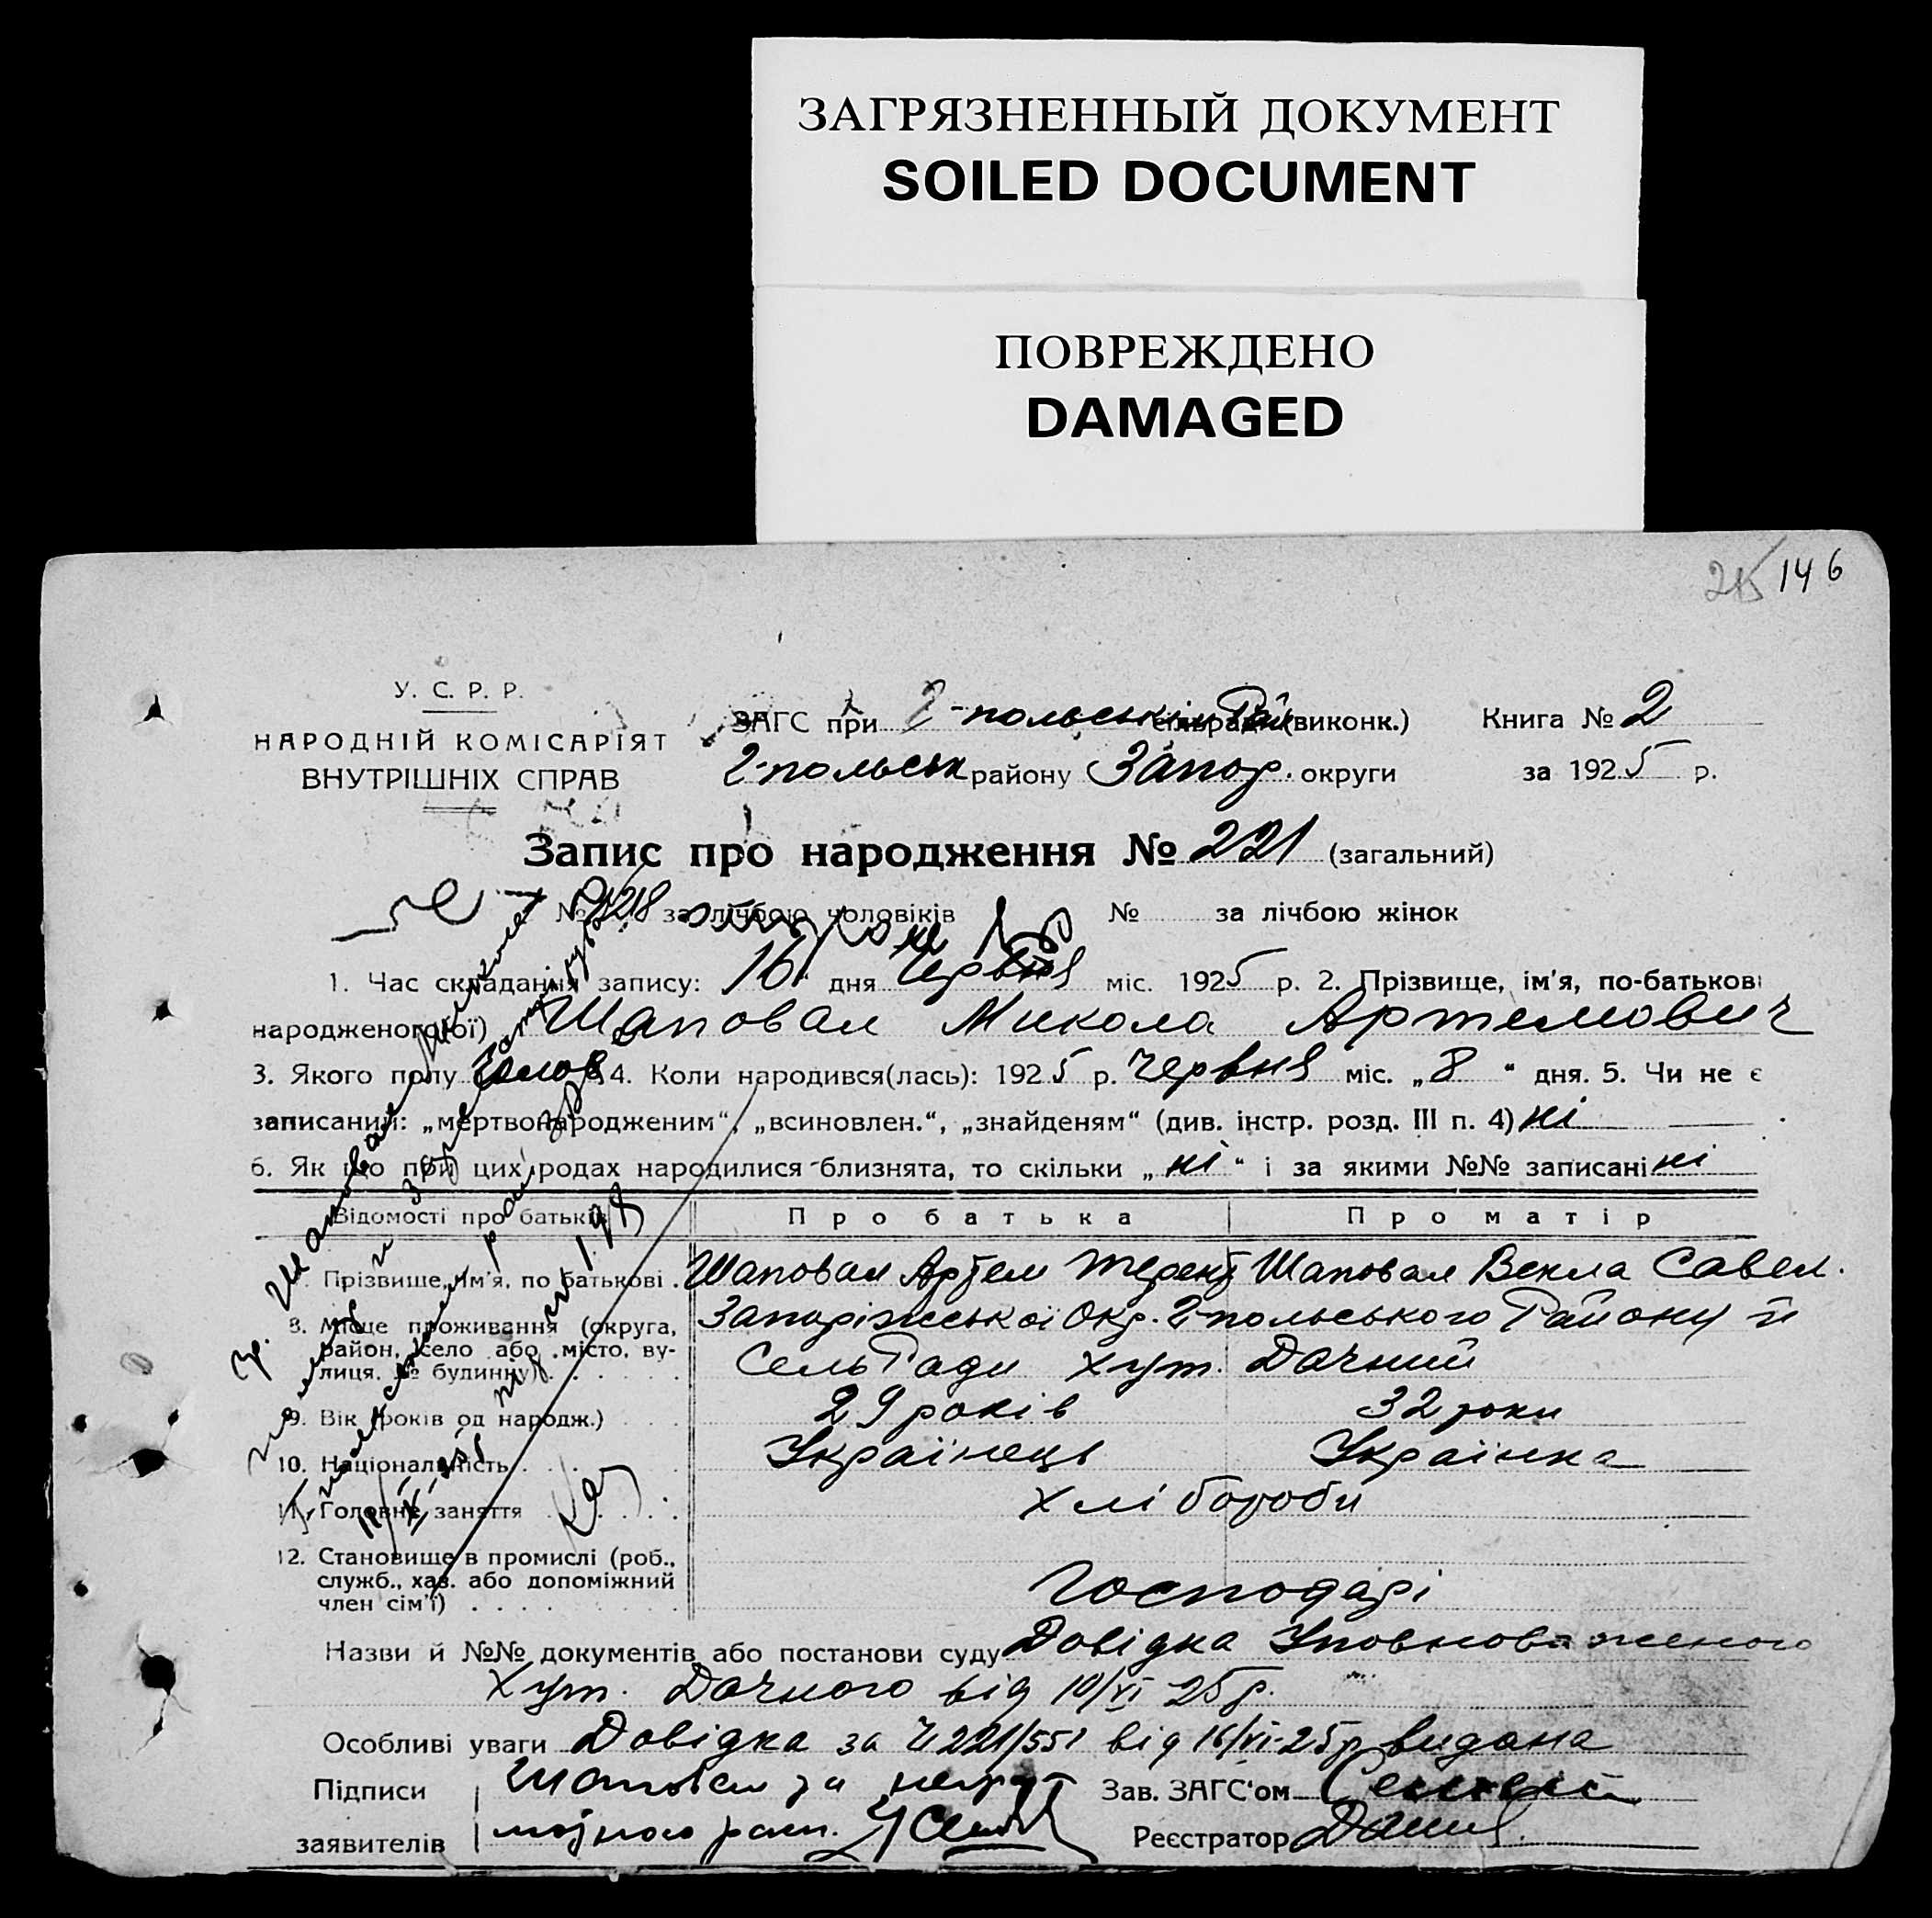 ЗАГРЯЗНЕННЫЙ ДОКУМЕНТ
SOILED DOCUMENT
ПОВРЕЖДЕНО
DAMAGED
146
У. С. Р. Р.
НАРОДНІЙ КОМІСАРІЯТ
ВНУТРІШНІХ СПРАВ
ЗАГС при 2-польськім Рай(виконк.) Книга № 2
2-польськ району Запор. округи за 1925 р.
Запис про народження № 221 (загальний)
№ 128 за лічбою чоловіків № за лічбою жінок
1. Час складання запису: 16 " дня Червня міс. 1925 р. 2. Прізвище, ім'я, по-батькові
народженого(ої) Шаповал Микола Артемович
3. Якого полу Чолов 4. Коли народився(лась): 1925 р. Червня міс. „ 8 “ дня. 5. Чи не є
записаний: „мертвонародженим“, „всиновлен.“, „знайденям“ (див. інстр. розд. III п. 4) ні
6. Як що при цих родах народилися близнята, то скільки „ ні “ і за якими №№ записані ні
Відомості про батьків Про батька Про матір
Прізвище, ім'я, по батькові . Шаповал Артем Терент Шаповал Векла Савел.
8. Місце проживання (округа, район, село або місто, вулиця, № будинку) Запоріжської Окр. 2-польського Району й
СельРади Хут. Дачний
9. Вік (років од народж.) 29 років 32 роки
10. Національність Українець Українка
11. Головне заняття Хлібороби
12. Становище в промислі (роб.,
служб., хаз. або допоміжний
член сім'ї) Господарі
Назви й №№ документів або постанови суду Довідка Уповноваженого
Хут. Дачного від 10/VI 25 р.
Особливі уваги Довідка за Ч 221/551 від 16/VI-25р видана
Підписи Шаповал за Зав. ЗАГС'ом
заявителів Реєстратор